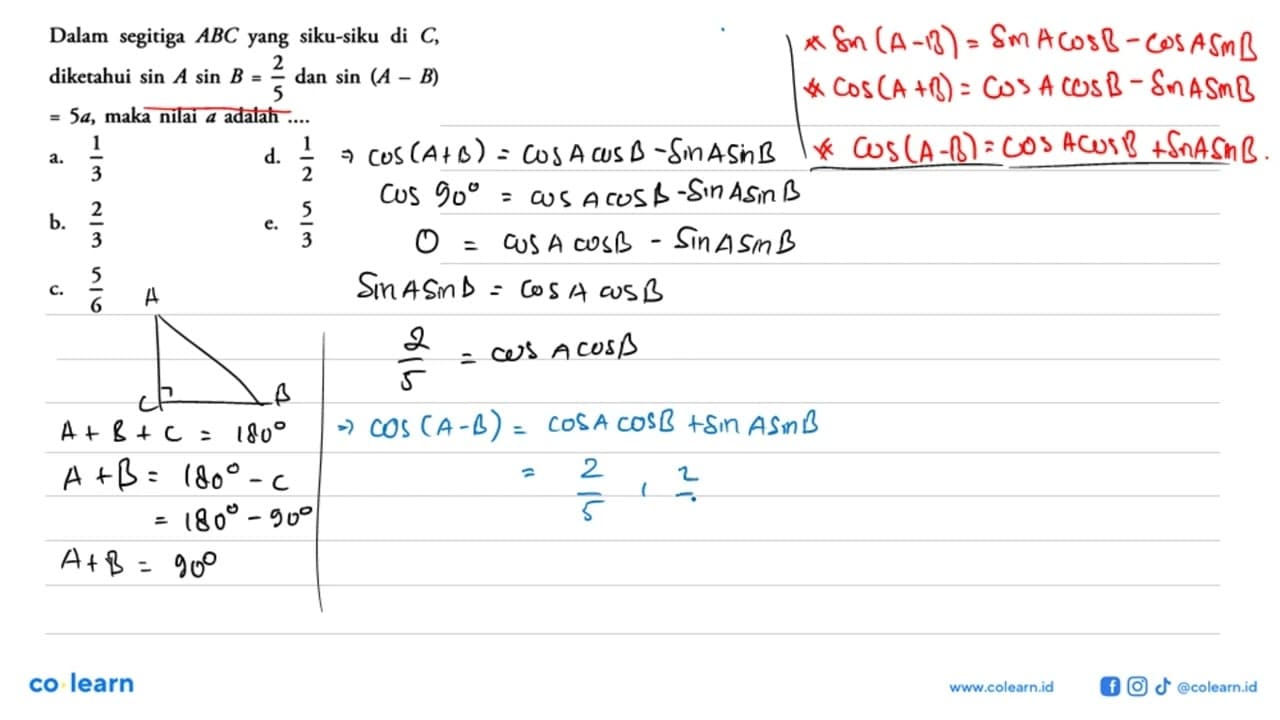 Dalam segitiga ABC yang siku-siku di C,
diketahui sin A sin B = 2/5 dan sin (A – B)
= 5a, maka nilai a adalah ....
a. 1/3
d. 1/2
b. 2/3
e. 5/3
c. 5/6
* Sin (A-B) = Sin A cos B - cos A Sin B
* cos (A+B) = cos A cos B - Sin A Sin B
* cos (A-B) = cos A cos B + Sin A Sin B.
⇒ cos (A+B) = cos A cos B - Sin A Sin B
cos 90° = cos A cos B - Sin A Sin B
0 = cos A cos B - Sin A Sin B
Sin A Sin B = cos A cos B
2/5 = cos A cos B
⇒ cos (A-B) = cos A cos B + Sin A Sin B
= 2/5 , 2
A
C
B
A + B + C = 180°
A + B = 180° - C
= 180° - 90°
A + B = 90°
co learn
www.colearn.id
@colearn.id